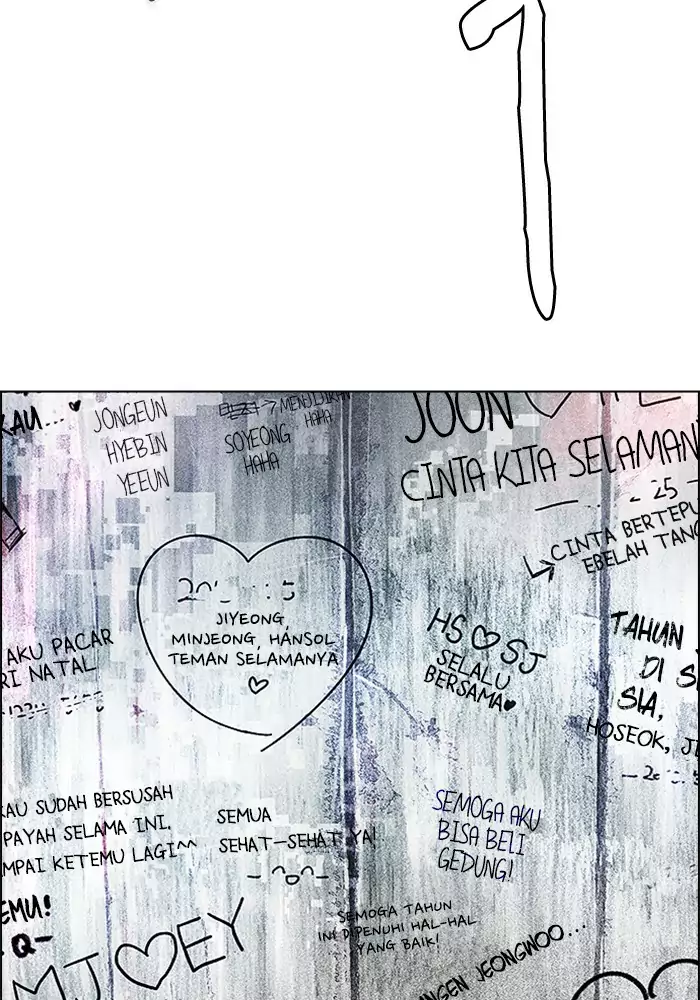 KAU...♥
JONGEUN
HYEBIN
YEEUN
SOYEONG
HAHA
HAHA
JOON
CINTA KITA SELAMAN
25
CINTA BERTEPU
EBELAH TANG
JIYEONG,
MINJEONG, HANSOL
TEMAN SELAMANYA
♡
AKU PACAR
RI NATAL
HS♡SJ
SELALU
BERSAMA♥
TAHUN
DI S
SIA,
HOSEOK, J
KAU SUDAH BERSUSAH
PAYAH SELAMA INI.
MPAI KETEMU LAGI^^
SEMUA
SEHAT-SEHAT YA!
SEMOGA AKU
BISA BELI
GEDUNG!
EMU!
- Q -
SEMOGA TAHUN
INI DIPENUHI HAL-HAL
YANG BAIK!
MJ♡EY
NGEN JEONGWOO...